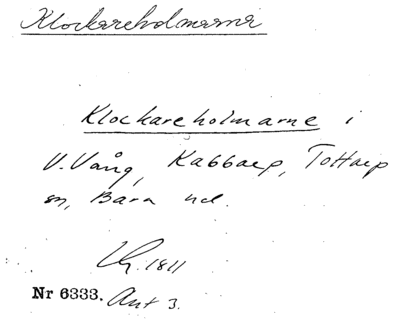 Klockareholmarna
Klockareholmarne i
V. Vång, Kabbarp, Tottarp
sn, Bara hd.
1811
Nr 6333. Akt 3.